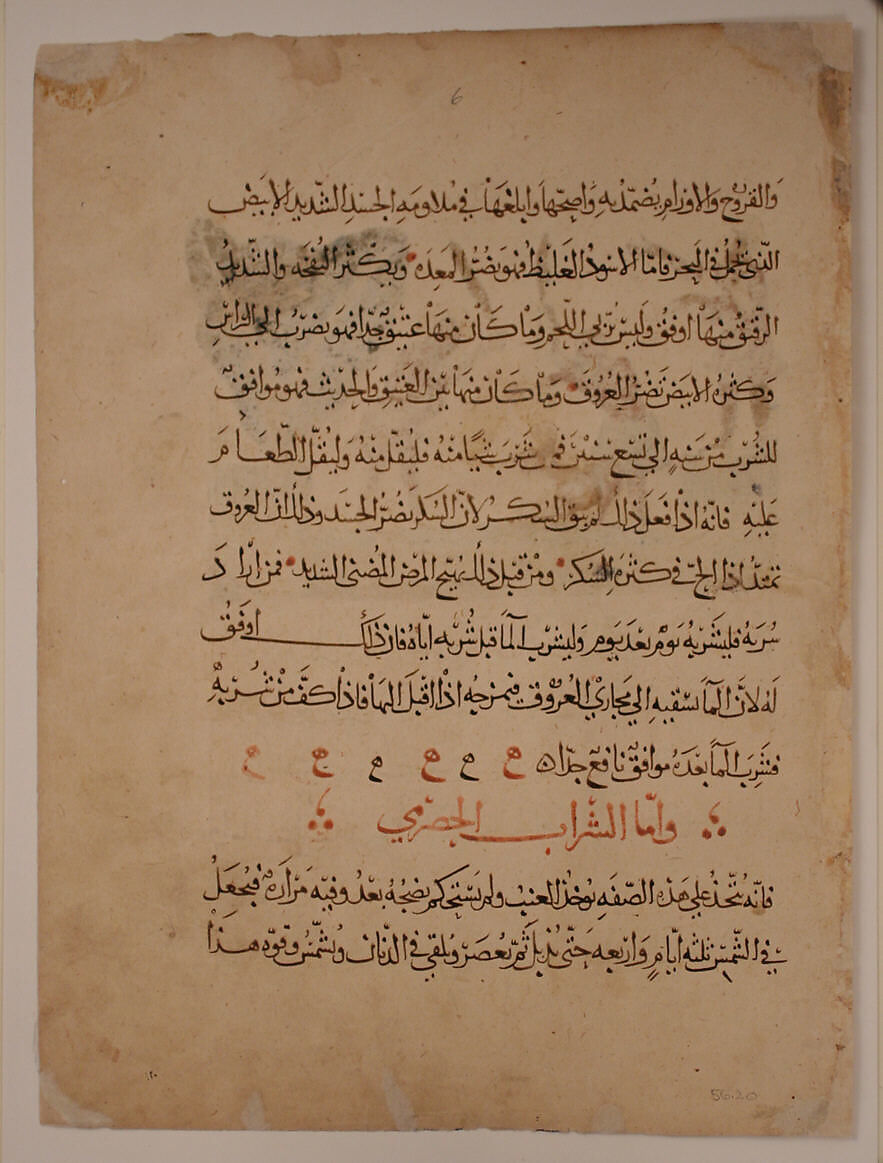 6
والقروح والاورام يضمد به واصحها وابلغها في ملاومه الجسد الشديد الابيض
الذي يحمل في البحر فاما الاسود الغليظ فهو يضر المعده ويكثر النفخه والشديد
الرقيق منها اوفق وليس يربي اللحم وما كان منها عتيق جدا فهو يضر بالحي
وكثره الابيض تضر العروق وما كان منها بين العتيق والحديث فهو موافق
للشرب من سنه الى تسع سنين فمن شرب شيا منه فليقلل منه وليقل الطعام
عليه فانه اذا فعل ذلك لم يبق السكر لان السكر يضر الجسد وذلك ان العروق
تمتد اذا الح في كثره السكر ومن قبل ذلك يهيج المرض المضني الشديد فمن اراد
شربه فليشربه يوم بعد يوم وليشرب الما قبل شربه اياه فان ذلك اوفق
له لان الما يسقيه الى مجاري العروق فيمزجه اذا اقبل اليها فاذا كف من شربه
فشرب الما بعده موافق نافع جدا ه
واما الشراب الحصرمي
فانه يتخذ على هذه الصفه يوخذ العنب ولم يستحكم نضجه بعد وفيه مراره فيجعل
في الشمس ثلثه ايام واربعه حتى يذبل ثم يعصر ويلقى في الدنان ويشمس وقوه هذا
56.20